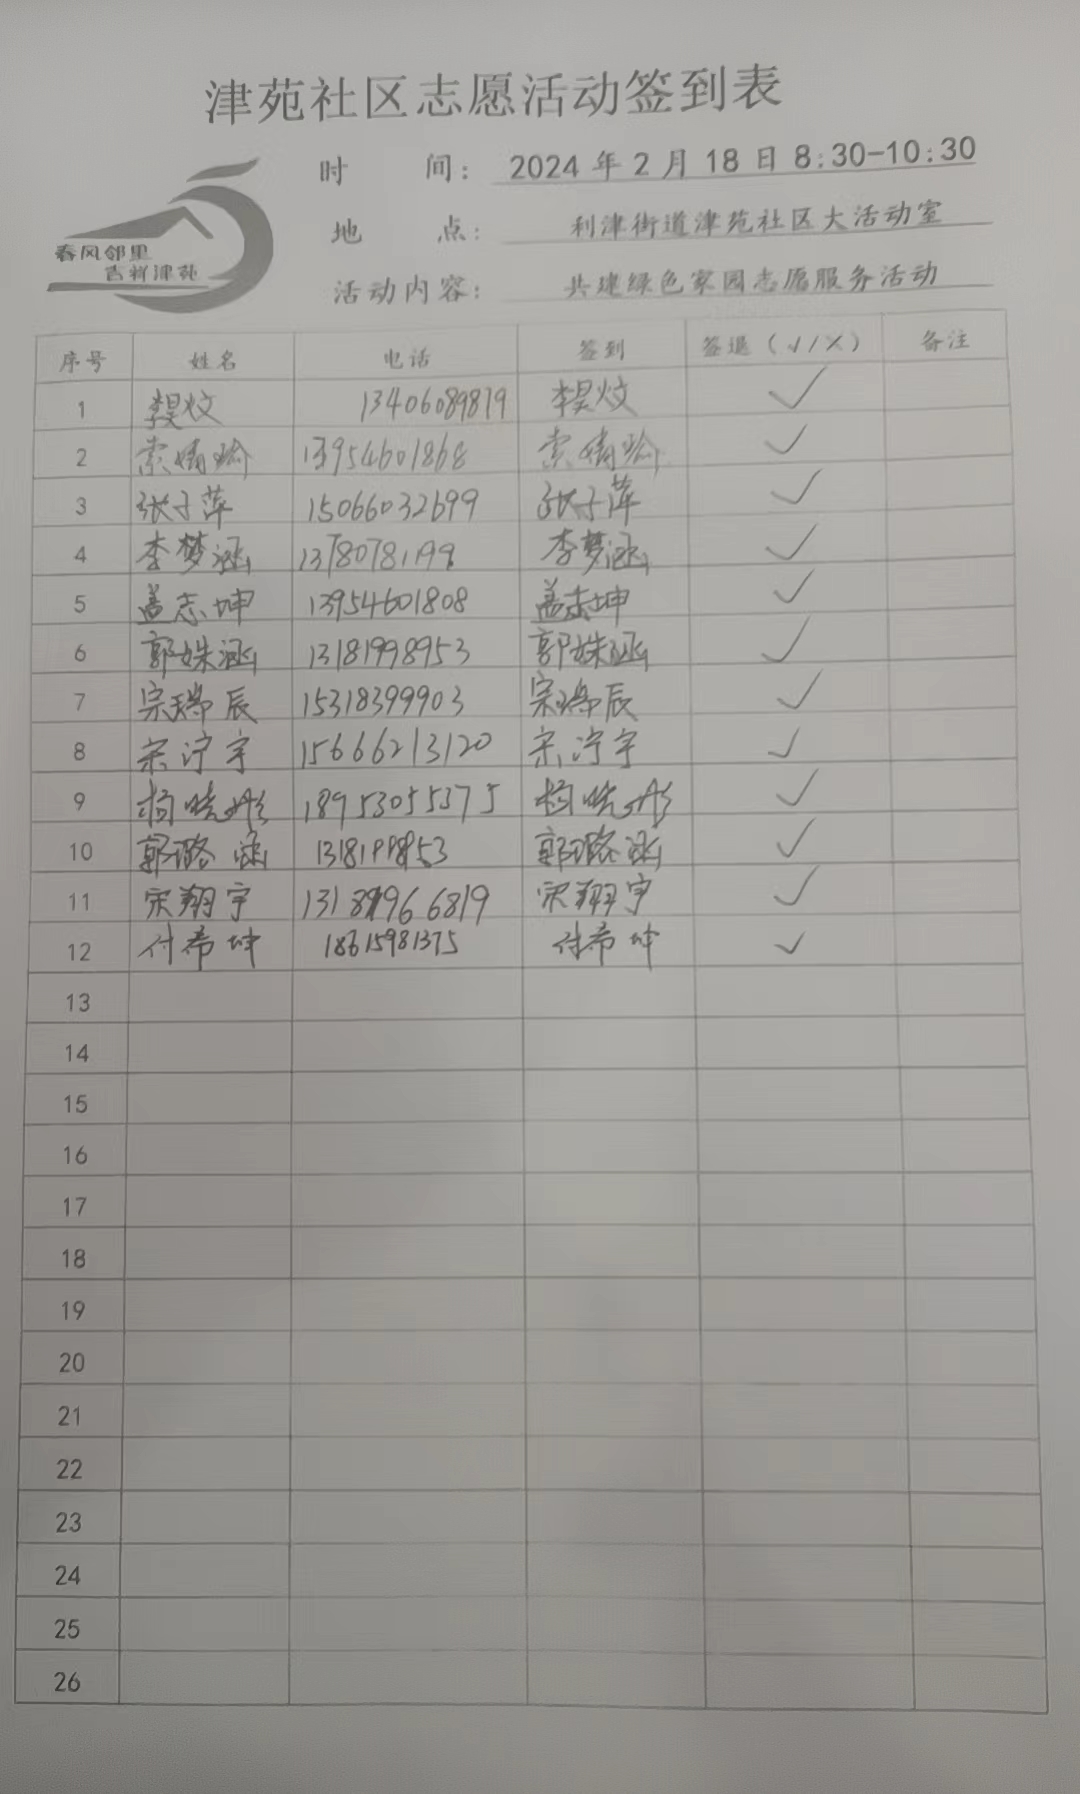 津苑社区志愿活动签到表
春风邻里
吉祥津苑
时 间： 2024 年 2 月 18 日 8:30-10:30
地 点： 利津街道津苑社区大活动室
活动内容： 共建绿色家园志愿服务活动
序号 姓名 电话 签到 签退（√/×） 备注
1 13406089819 ✓
2 索婧瑜 13954601868 索婧瑜 ✓
3 张子萍 15066032699 张子萍 ✓
4 李梦涵 李梦涵 ✓
5 盖志坤 13954601808 盖志坤 ✓
6 郭姝涵 13181998953 郭姝涵 ✓
7 宗瑞辰 15318399903 宗瑞辰 ✓
8 宋泞宇 15666213120 宋泞宇 ✓
9 杨晓彤 18953055375 杨晓彤 ✓
10 郭璐涵 郭璐涵 ✓
11 宋翔宇 宋翔宇 ✓
12 付希坤 18615981375 付希坤 ✓
13
14
15
16
17
18
19
20
21
22
23
24
25
26